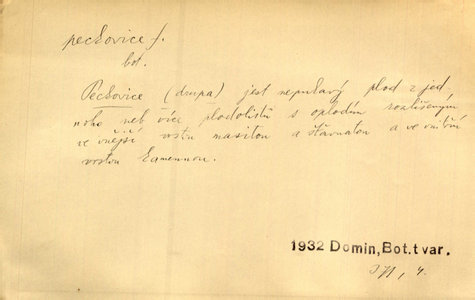 peckovice f.
bot.
Peckovice (drupa) jest nepukavý plod z jed
noho neb více plodolistů s oplodím rozlišeným
ve vnější vrstvu masitou a šťavnatou a ve vnitřní
vrstvu kamennou.
1932 Domin, Bot. tvar.